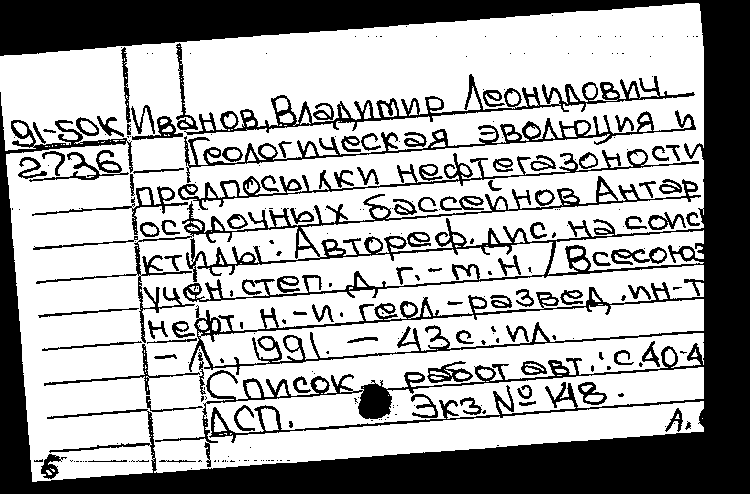 Иванов, Владимир Леонидович.
91-50К Геологическая эволюция и
2736 предпосылки нефтегазоности
осадочных бассейнов Антар
ктиды: Автореф. дис. на соиск
учен. степ. д. г.-м.н. / Всесоюз
нефт. н.-и. геол.-развед. ин-т
- Л., 1991. - 43 с.: ил.
Список работ авт.: с. 40-4
ДСП. Экз. № 148.
А.
5